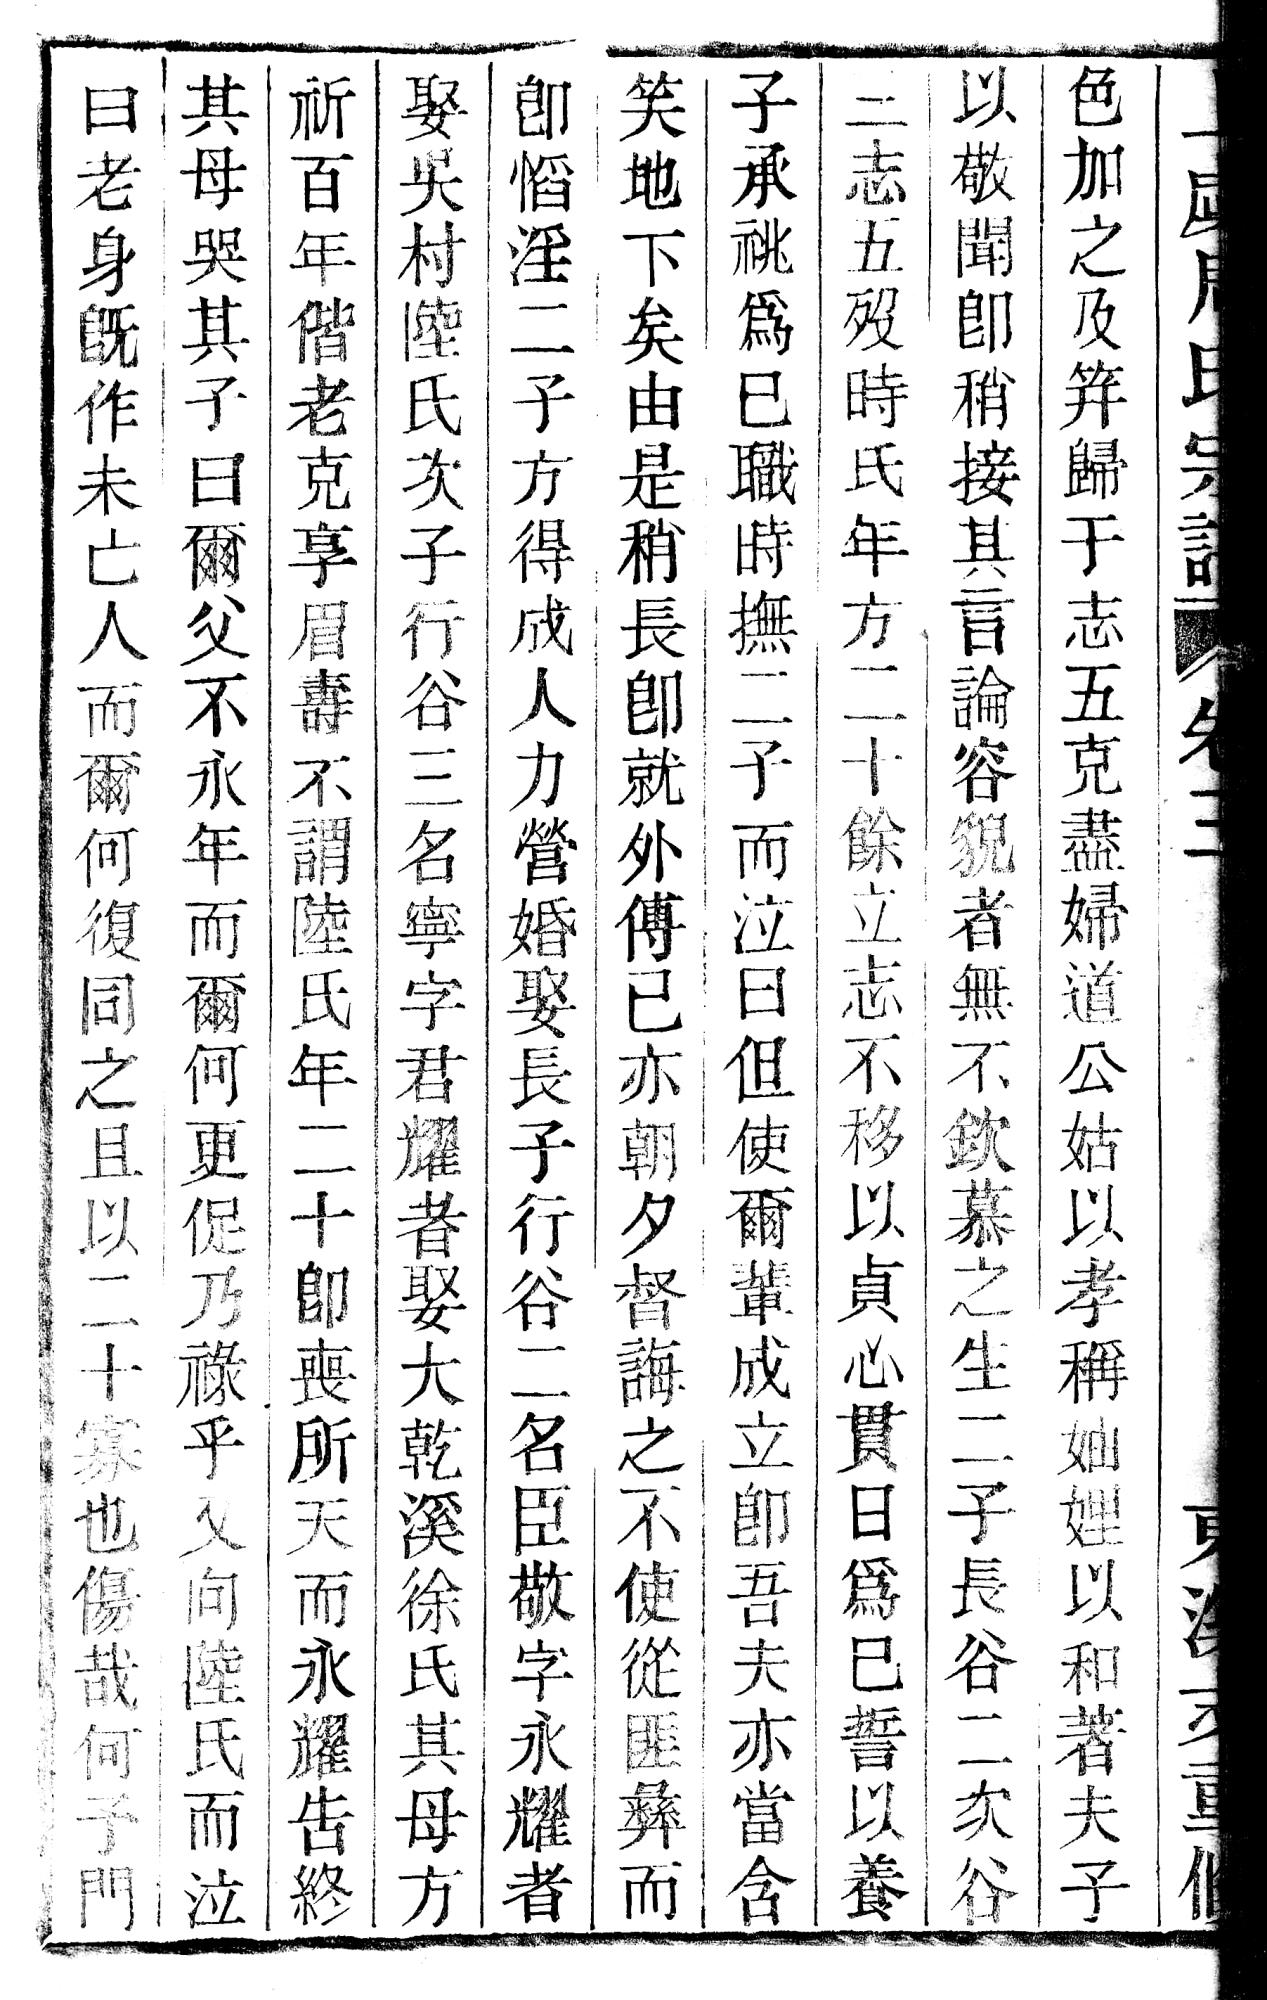 周氏宗譜 卷三
色加之及筓歸于志五克盡婦道公姑以孝稱妯娌以和著夫子
以敬聞卽稍接其言論容貌者無不欽慕之生二子長谷二次谷
三志五歿時氏年方二十餘立志不移以貞心貫日爲已誓以養
子承祧爲已職時撫二子而泣曰但使爾輩成立卽吾夫亦當含
笑地下矣由是稍長卽就外傅已亦朝夕督誨之不使從匪彝而
卽慆淫二子方得成人力營婚娶長子行谷二名臣敬字永耀者
娶吳村陸氏次子行谷三名寧字君耀者娶大乾溪徐氏其母方
祈百年偕老克享眉壽不謂陸氏年二十卽喪所天而永耀告終
其母哭其子曰爾父不永年而爾何更促乃祿乎又向陸氏而泣
曰老身旣作未亡人而爾何復同之且以二十寡也傷哉何予門